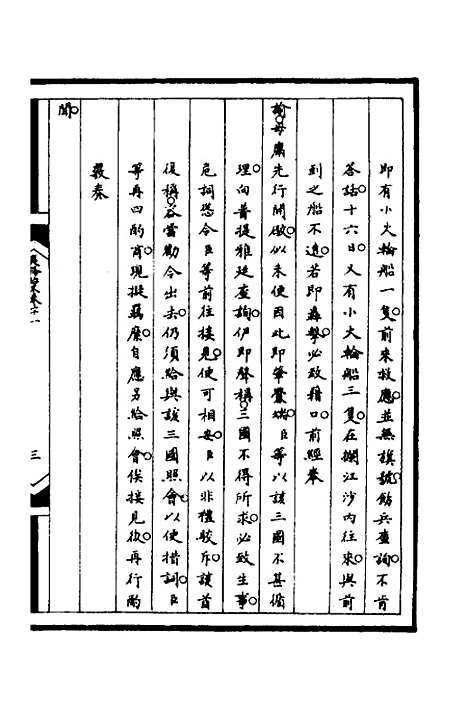 即有小火輪船一隻前來救應並無旗號飭兵查詢不肯
答話十六日又有小大輪船三隻在攔江沙內往來與前
到之船不遠若即轟擊必致藉口前經奉
諭毋庸先行開礮似未便因此即肇釁端臣等以該三國不甚循
理向普提雅廷查詢伊即聲稱三國不得所求必致生事
危詞恐令臣等前往接見便可相安臣以非禮駁斥該酋
復稱谷當勸令出去仍須給與該三國照會以便措詞臣
等再四酌商現擬羈縻自應另給照會俟接見後再行酌
覈奏
聞
三